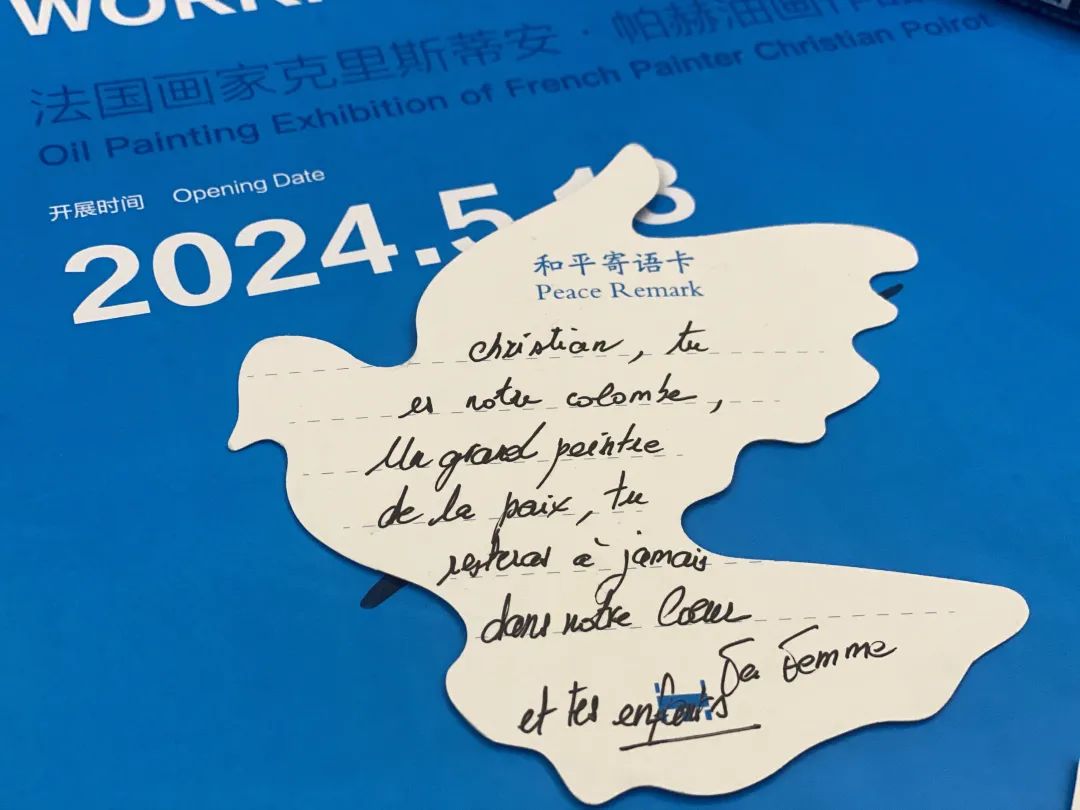 法国画家克里斯蒂安·帕赫油画
Oil Painting Exhibition of French Painter Christian Poirot
开展时间 Opening Date
2024.5.18
和平寄语卡
Peace Remark
christian, tu
es notre colombe,
Un grand peintre
de la paix, tu
resteras à jamais
dans notre cœur
Ta Femme
et tes enfants